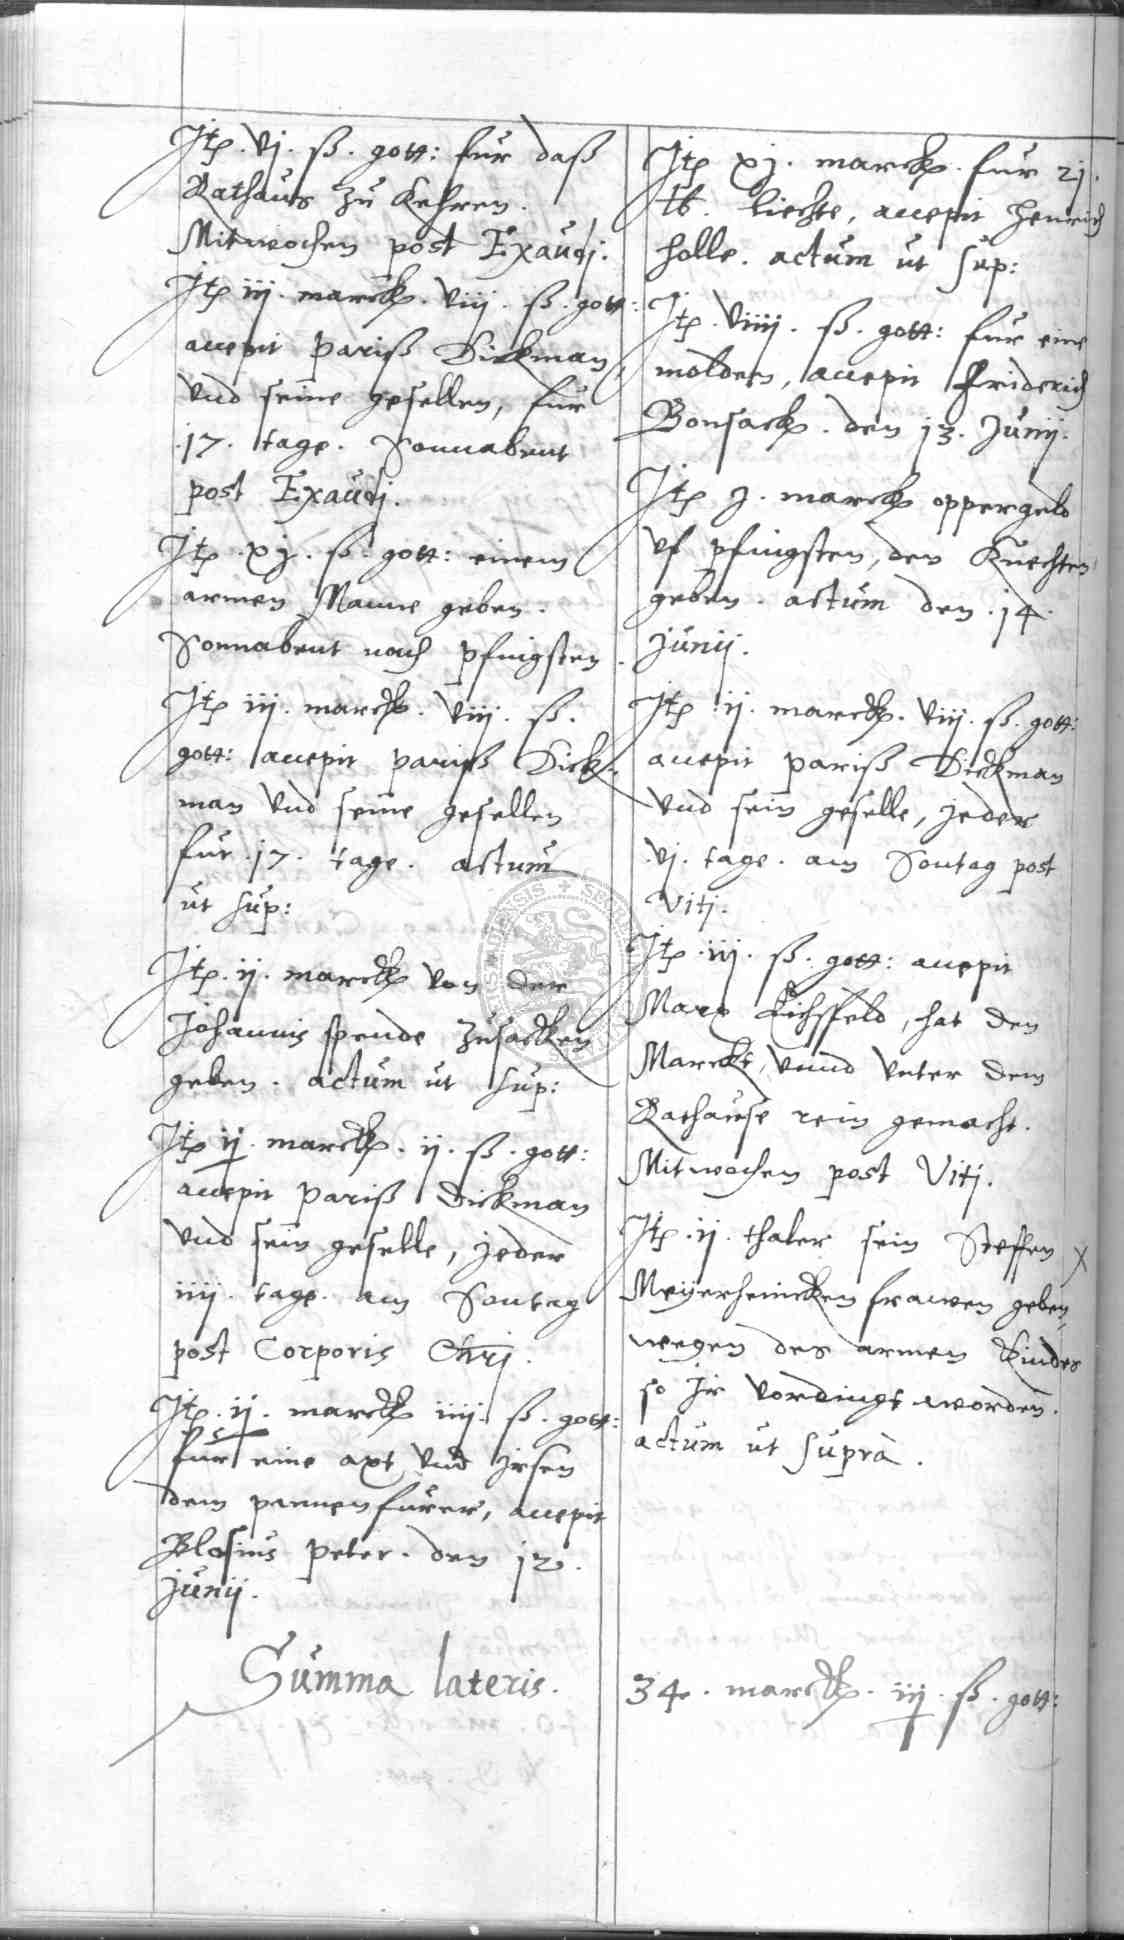 Jtz. vj. ß. gott: fur daß
Rathaus zu Kehren.
Mitwochen post Exaudj.
Jtz iij. marck. viij. ß. gott:
accepit Pariß Dickman,
vnd seine gesellen, fur
.17. tage. Sonnabent
post Exaudj.
Jtz. xj. ß. gott: einem
armen Manne geben.
Sonnabent nach Pfingsten.
Jtz iij. marck. viij. ß.
gott: accepit Pariß Dick-
man vnd seine gesellen
fur .17. tage. actum
ut sup:
Jtz. ij. marck von der
Johannis spende zusacken
geben. actum ut sup:
Jtz ij. marck. ij. ß. gott:
accepit Pariß Dickman
vnd sein geselle, jeder
iiij. tage. am Sontag
post Corporis Chrj.
Jtz. ij. marck iiij. ß. gott:
fur eine axt vnd
dem pannenfurer, accepit
Blasius Peter. den 12.
Junij.
Jtz xj. marck. fur 21.
lb. liechte, accepit Henrich
Holle. actum ut sup:
Jtz. viiij. ß. gott: fur eine
molden, accepit Friderich
Bonsack. den 13. Junij.
Jtz j. marck oppergeld
vf pfingsten, den Knechten
geben. actum den .14.
Junij.
Jtz .ij. marck. viij. ß. gott:
accepit Pariß Dickman
vnd sein geselle, jeder
.vj. tage. am Sontag post
Vitj.
Jtz .iij. ß. gott: accepit
Marx Eichsfeld, hat den
Marckt, vnnd vnter dem
Rathause rein gemacht.
Mitwochen post Vitj.
Jtz .ij. thaler sein Steffen
Meyerheincken frawen geben,
wegen des armen Kindes
so Jr vordingt worden.
actum ut supra.
Summa lateris.
34. marck. iij. ß. gott: